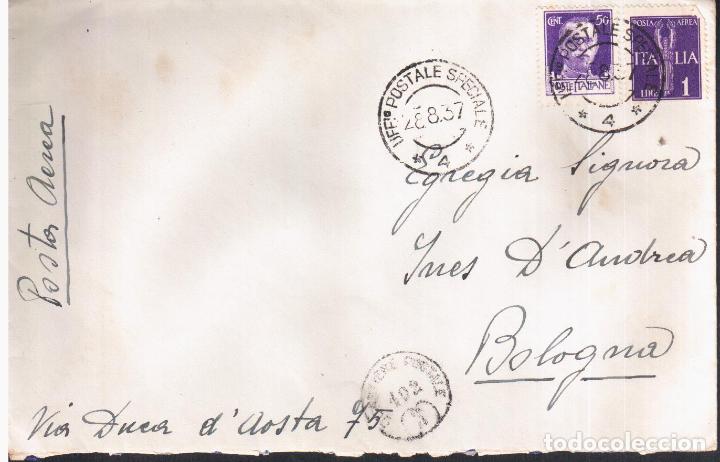 CENT. 50
POSTE ITALIANE
POSTA AEREA
ITALIA
LIRE 1
UFFIº POSTALE SPECIALE
28.8.37
* 4 *
POSTALE SPECIALE
8.37
* 4 *
Posta Aerea
Egregia Signora
Ines D'Andrea
Bologna
Via Duca d'Aosta 75
402
todocoleccion.net